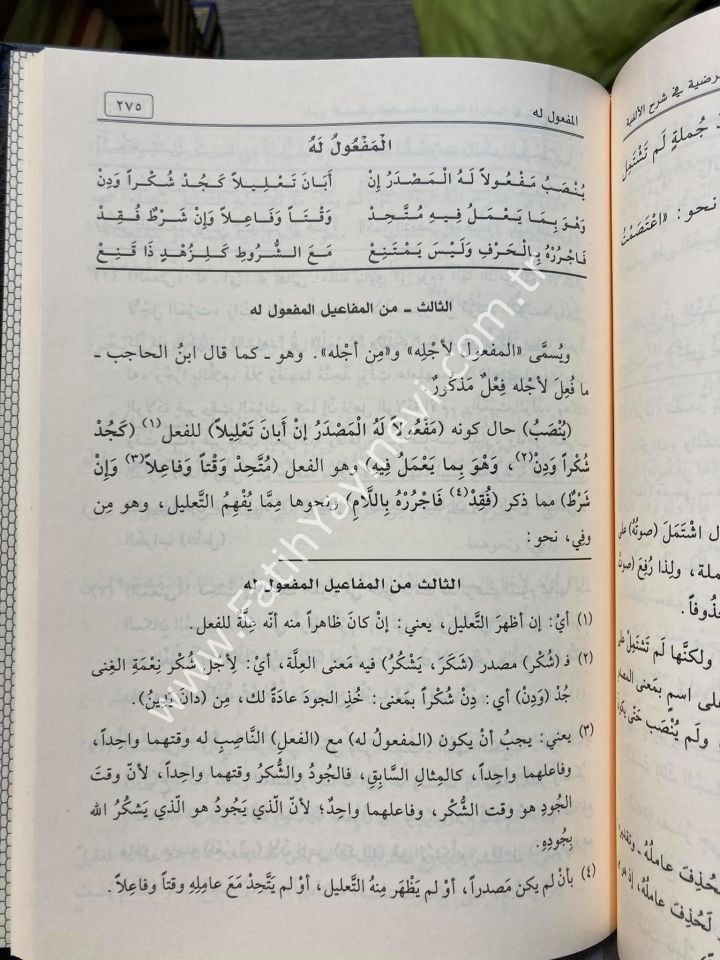 المفعول له
٢٧٥
الْمَفْعُولُ لَهُ
يُنْصَبُ مَفْعُولاً لَهُ الْمَصْدَرُ إِنْ أَبَانَ تَعْلِيلاً كَجُدْ شُكْراً وَدِنْ
وَهْوَ بِمَا يَعْمَلُ فِيهِ مُتَّحِدْ وَقْتاً وَفَاعِلاً وَإِنْ شَرْطٌ فُقِدْ
فَاجْرُرْهُ بِالْحَرْفِ وَلَيْسَ يَمْتَنِعْ مَعَ الشُّرُوطِ كَلِزُهْدٍ ذَا قَنِعْ
الثالث ـ من المفاعيل المفعول له
ويُسمَّى «المفعول لأجْلِه» و«مِن أجْله». وهو ـ كما قال ابنُ الحاجب ـ
ما فُعِلَ لأجْله فِعْلٌ مَذكورٌ
(يُنْصَبُ) حال كونه (مَفْعُولاً لَهُ الْمَصْدَرُ إنْ أَبانَ تَعْلِيلاً) للفعل(١) (كَجُدْ
شُكْراً وَدِنْ(٢)، وَهْوَ بِما يَعْمَلُ فِيهِ) وهو الفعل (مُتَّحِدْ وَقْتاً وَفاعِلاً(٣) وَإِنْ
شَرْطٌ) مما ذكر (فُقِدْ(٤) فَاجْرُرْهُ بِاللَّامِ) ونحوها مِمَّا يُفْهِمُ التَّعليل، وهو مِن
وفِي، نحو:
الثالث من المفاعيل المفعول له
(١) أيْ: إن أظهرَ التَّعليل، يعني: إنْ كانَ ظاهراً منه أنّه عِلَّة للفعل.
(٢) فـ (شُكْر) مصدر (شَكَرَ، يَشْكُرُ) فيه مَعنى العِلَّة، أيْ: لِأجل شُكْر نِعْمَةِ الغِنى
جُدْ (وَدِنْ) أي: دِنْ شُكْراً بمَعنى: خُذِ الجودَ عادَةً لك، مِن (دانَ يَدِينُ).
(٣) يعني: يجبُ أنْ يكون (المفعولُ له) مع (الفعلِ) النَّاصِبِ له وقتهما واحِداً،
وفاعلهما واحِداً، كالمِثالِ السَّابِقِ، فالجُودُ والشُّكرُ وقتهما واحِداً، لأنّ وقتَ
الجُودِ هو وقت الشُّكْر، وفاعلهما واحِدٌ؛ لأنّ الّذي يَجُودُ هو الّذي يَشكُرُ الله
بِجُودِهِ.
(٤) بأنْ لم يكن مَصدراً، أوْ لم يَظْهَر مِنهُ التَّعليل، أوْ لم يَتَّحِدْ مَعَ عامِلِهِ وقتاً وفاعِلاً.
www.FatihYayinevi.com.tr
رضية في شرح الألفية
جُملةٍ لَم تَشْتَمِلْ
نحو: «اعْتَصَمْتُ
اشْتَمَلَ (صوتُهُ) على
ملة، ولِذا رُفِعَ (صوتُ
ولكنَّها لَم تَشْتَمِلْ على
على اسمٍ بمَعنى المصدر
ولَم يُنْصَب حَتَّى يكونَ
لَحُذِفَ عامِلُهُ